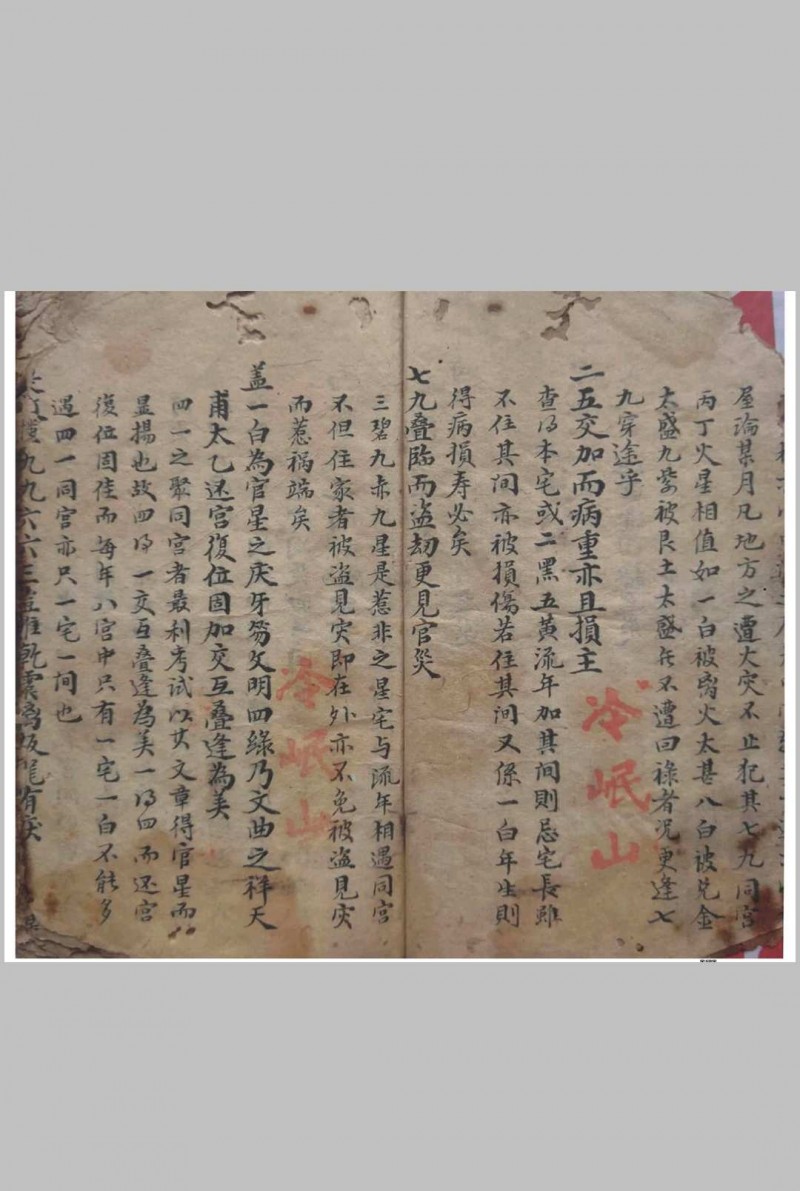 屋論某月凡地方之遭大灾不止犯其七九同宫
丙丁火星相值如一白被离火太甚八白被兑金
太盛九紫被艮土太盛
不遭回祿者况更逢七
九穿途乎
二五交加而病重亦且損主
查得本宅或二黑五黃流年加其間則忌宅長雖
不住其間亦被損傷若住其間又係一白年生則
得病損寿必矣
七九叠临而盗劫更見官災
三碧九赤九星是惹非之星宅与流年相遇同宫
不但住家者被盗見灾即在外亦不免被盗見灾
而惹祸端矣
盖一白為官星之庆牙笏文明四綠乃文曲之祥天
甫太乙还宫復位固加交互叠逢為美
四一之聚同宫者最利考試以其文章得官星而
显揚也故四得一交互叠逢為美一得四而还宫
復位固佳而每年八宫中只有一宅一白不能多
遇四一同宫亦只一宅一间也
九九六六三
乾震离
有庆
冷岷山
冷岷山